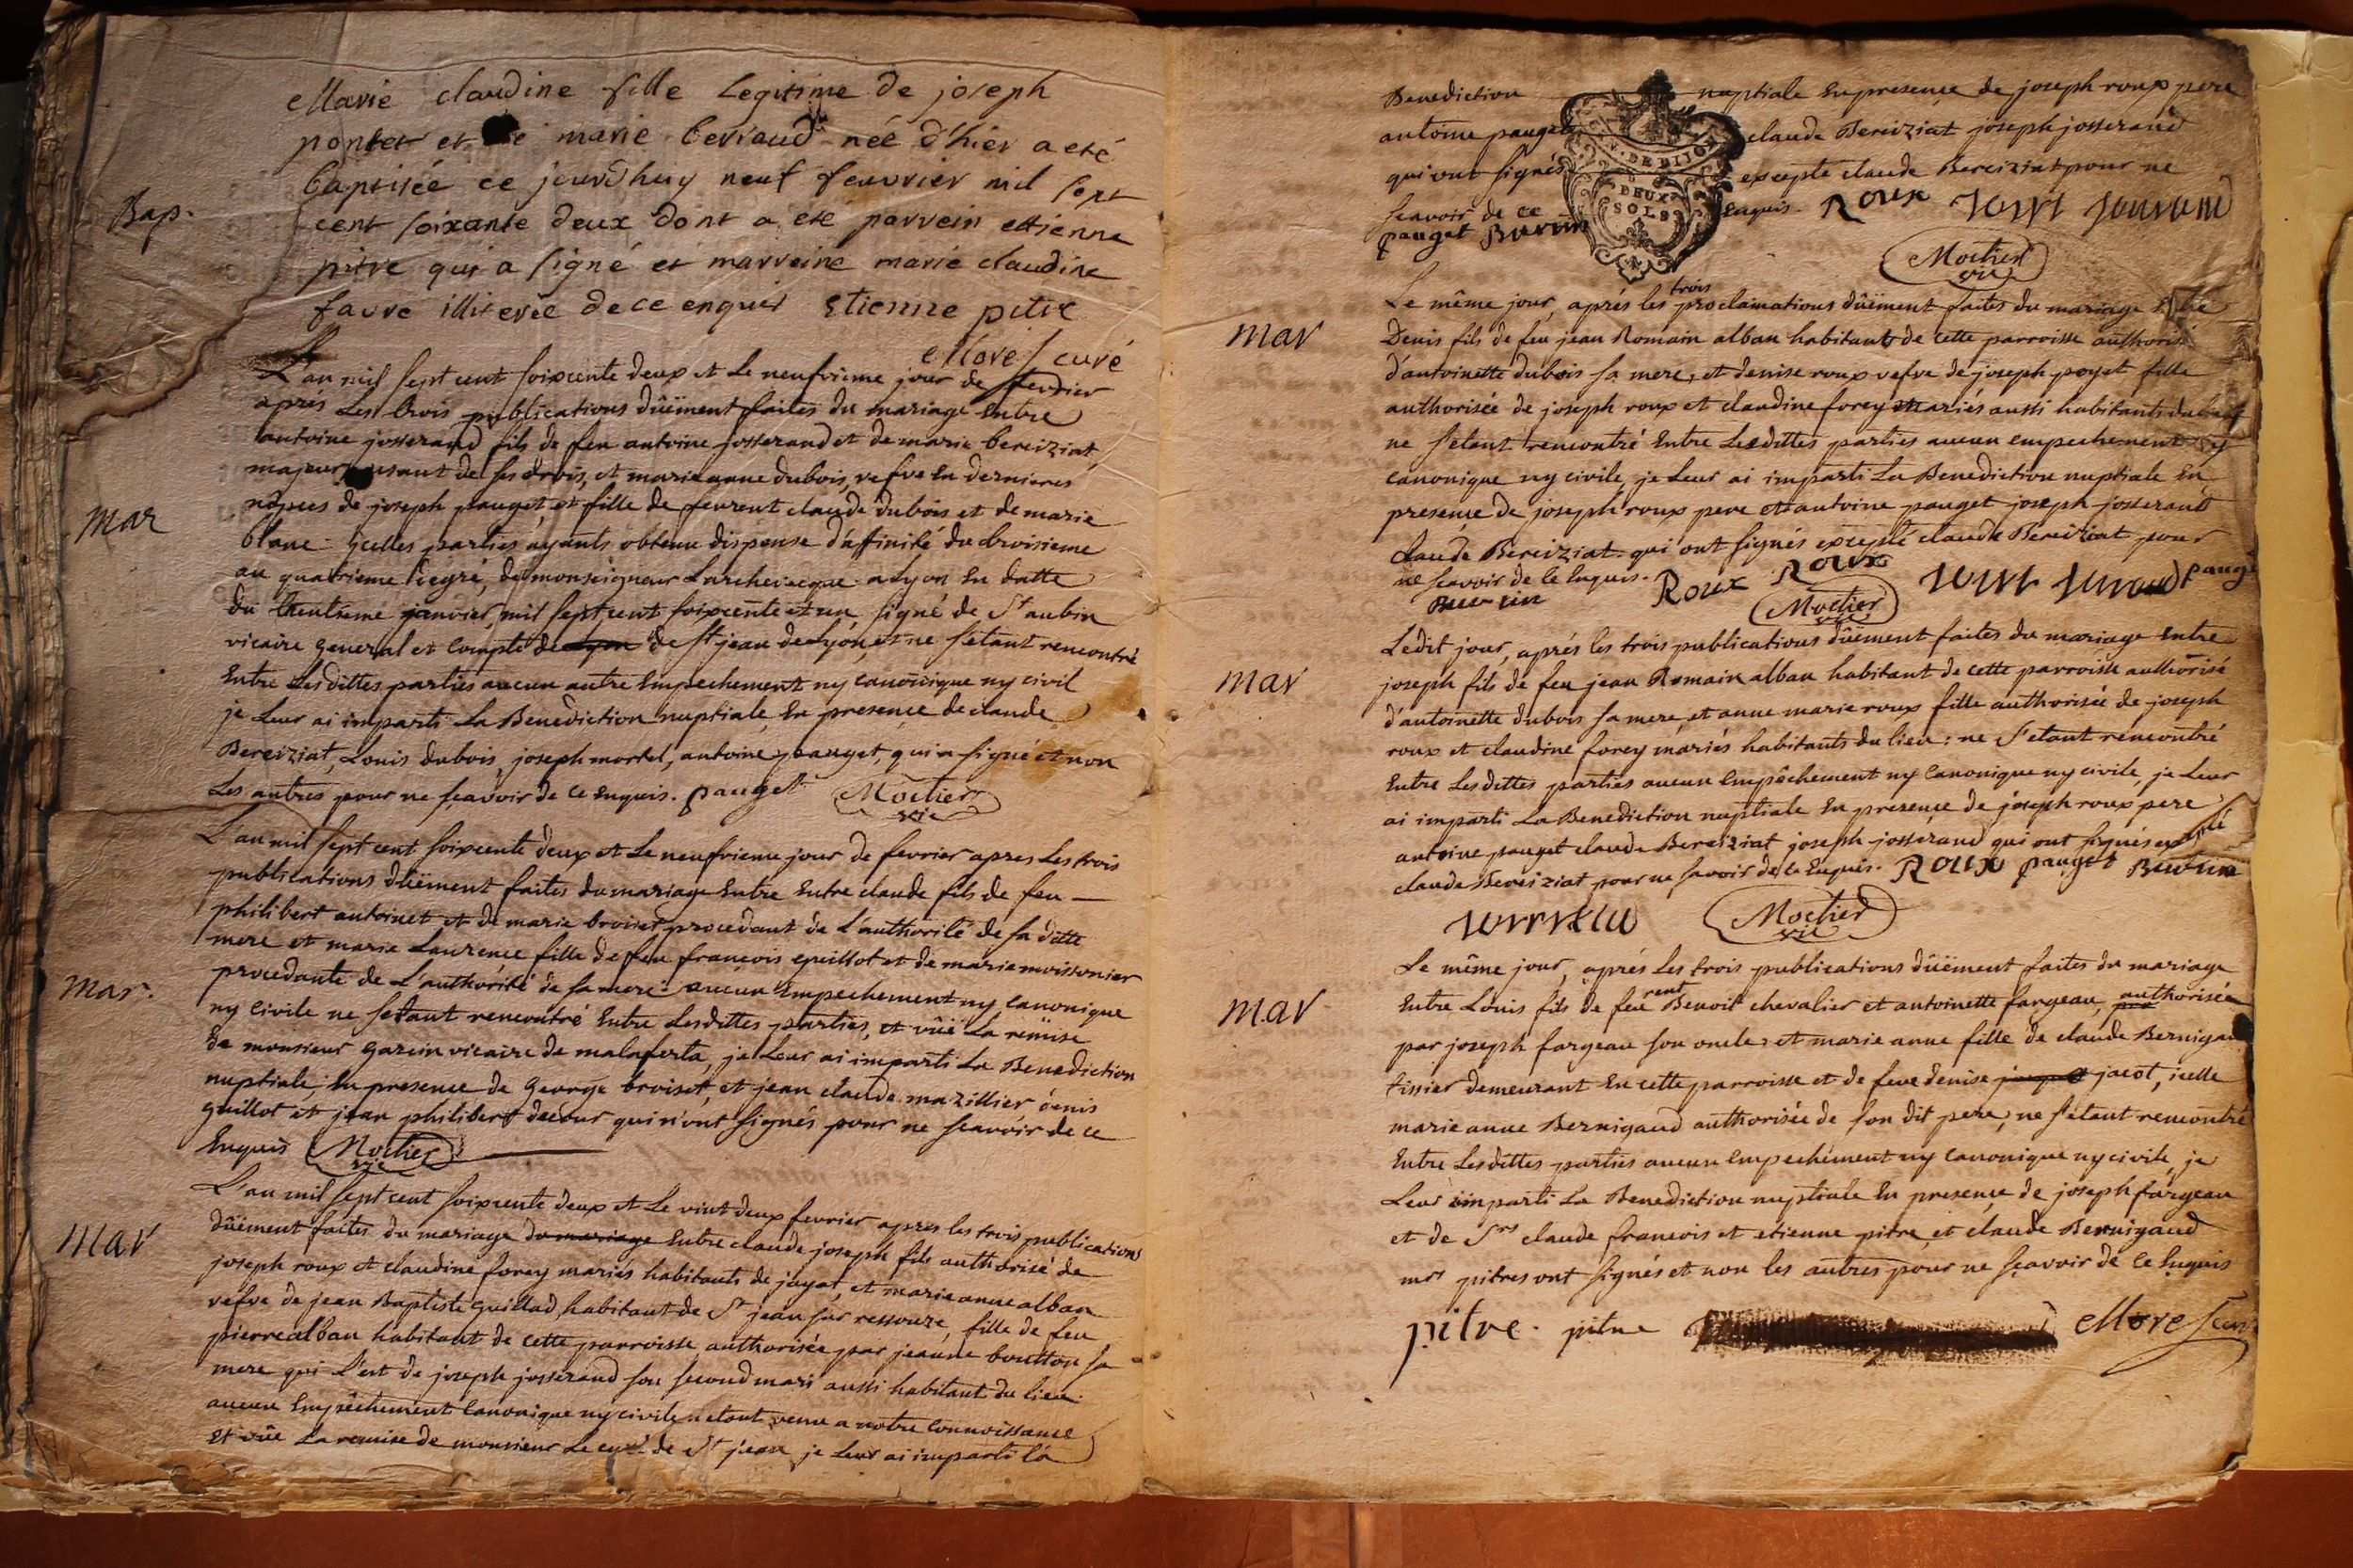 Bap.
Marie claudine fille Legitime de joseph
ponter et de marie berraud née d'hier a eté
baptisée ce jourdhuy neuf feuvrier mil sept
cent soixante deux dont a eté parrein ettienne
pitre qui a signé et marreine marie claudine
favre illiterée de ce enquis Etienne pitre
More curé
Mar
L'an mil sept cent soixcente deux et Le neufvieme jour de fevrier
après Les trois publications dûëment faites du mariage Entre
antoine josserand fils de feu antoine josserand et de marie bereiziat
majeur usant de ses drois, et marie anne dubois, vefve En dernieres
nôpces de joseph pauget, et fille de feurent claude dubois et de marie
blanc ycelles parties ayants obtenu dispense d'affinité du troisieme
au quatrieme degré, de monseigneur L'archeveque a Lyon En datte
du trentieme janvier, mil sept cent soixcente et un signé de St aubin
vicaire general et compte de Lyon de St jean de Lyon, et ne s'etant rencontré
Entre Lesdittes parties aucun autre Empechement ny canonique ny civil
je Leur ai imparti La Benediction nuptiale En presence de claude
Bereiziat, Louis dubois, joseph mortel, antoine pauget, qui a signé et non
Les autres pour ne scavoir de ce Enquis. pauget Mochier
vic
Mar.
L'an mil sept cent soixcente deux et Le neufvieme jour de fevrier apres Les trois
publications dûëment faites du mariage Entre Entre claude fils de feu
philibert antoinet et de marie broiset procedant de L'authorité de sa ditte
mere et marie Laurence fille de feu francois guillot et de marie moissonier
procedante de L'authorité de sa mere: aucun Empechement ny canonique
ny civile ne setant rencontré Entre Lesdittes parties, et vûë La remise
de monsieur garcin vicaire de malaferta, je Leur ai imparti La Benediction
nuptiale, En presence de George broiset, et jean claude mazillier denis
guillot et jean philibert decour qui n'ont signés pour ne scavoir de ce
Enquis Mochier
vic
Mar
L'an mil sept cent soixcente deux et Le vint deux fevrier apres les trois publications
dûëment faites du mariage du mariage Entre claude joseph fils authorisé de
joseph roux et claudine forey mariés habitants de jayat, et marie anne alban
vefve de jean Baptiste guillad, habitant de St jean sur ressouze, fille de feu
pierre alban habitant de cette parroisse authorisée par jeanne boutton sa
mere qui L'est de joseph josserand son second mari aussi habitant du lieu.
aucun Empêchement canonique ny civile n'etant venu a notre connoissance
et vûe La remise de monsieur Le curé de St jean je Leur ai imparti la
Benediction nuptiale En presence de joseph roux pere
antoine pauget claude Bereiziat joseph josserand
qui ont signés excepté claude Bereiziat pour ne
scavoir de ce Enquis. Roux
pauget
Mochier
vic
N. DE DIJON
DEUX
SOLS
Mar
trois
Le même jour, aprés les proclamations dûëment faites du mariage
Denis fils de feu jean Romain alban habitant de cette parroisse authorisé
d'antoinette dubois sa mere, et denise roux vefve de joseph poyet fille
authorisée de joseph roux et claudine forey mariés aussi habitants du lieu
ne s'etant rencontré Entre Lesdittes parties aucun empechement ny
canonique ny civile, je Leur ai imparti La Benediction nuptiale En
presence de joseph roux pere et antoine pauget joseph josserand
claude Bereiziat qui ont signés excepté claude Bereiziat pour
ne scavoir de ce Enquis. Roux Roux pauget
Mochier
vic
Mar
Ledit jour, aprés les trois publications dûëment faites du mariage Entre
joseph fils de feu jean Romain alban habitant de cette parroisse authorisé
d'antoinette dubois sa mere, et anne marie roux fille authorisée de joseph
roux et claudine forey mariés habitants du lieu: ne s'etant rencontré
Entre Lesdittes parties aucun Empêchement ny canonique ny civile, je Leur
ai imparti La Benediction nuptiale En presence de joseph roux pere
antoine pauget claude Bereiziat joseph josserand qui ont signés excepté
claude Bereiziat pour ne savoir de ce Enquis. Roux pauget
Mochier
vic
Mar
Le même jour, aprés Les trois publications dûëment faites du mariage
Entre Louis fils de feurent Benoit chevalier et antoinette fargeau, authorisée
par joseph fargeau son oncle, et marie anne fille de claude Bernigaud
tissier demeurant En cette parroisse et de feue denise jacot, icelle
marie anne Bernigaud authorisée de son dit pere, ne s'etant rencontré
Entre Lesdittes parties aucun Empechément ny canonique ny civile, je
Leur imparti La Benediction nuptiale En presence de joseph fargeau
et de Srs claude francois et etienne pitre et claude Bernigaud
mrs pitres ont signés et non les autres pour ne sçavoir de ce Enquis
pitre. pitre More curé